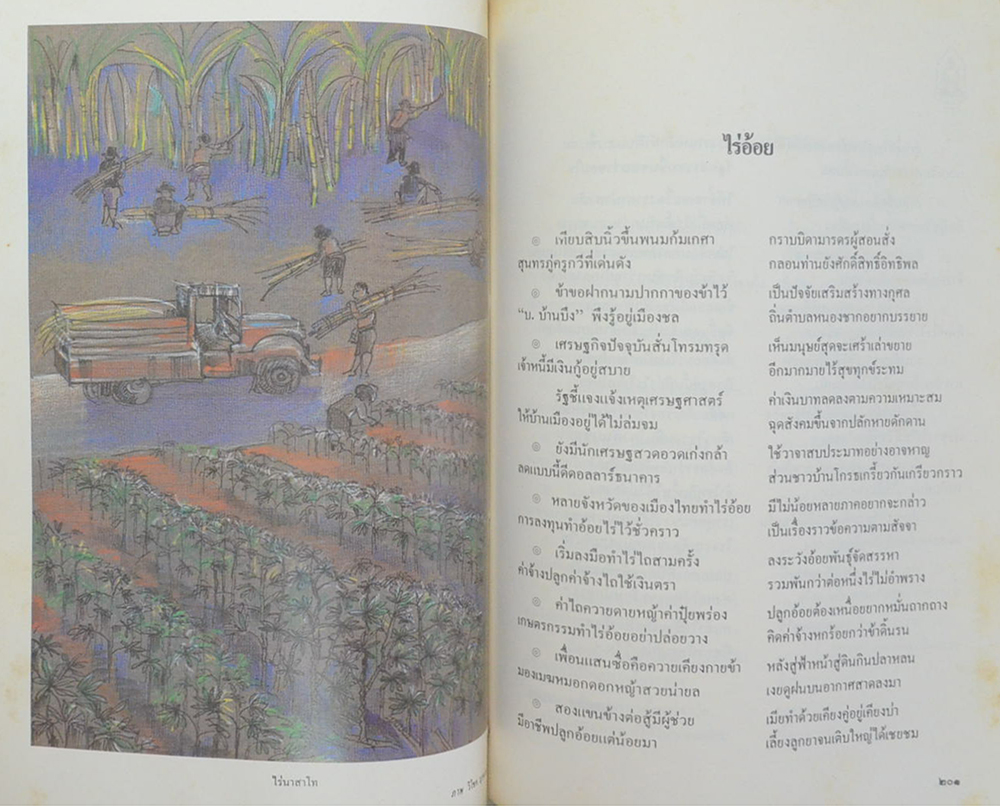 ไร่นาสาโท
ภาพ
ไร่อ้อย
๏ เทียบสิบนิ้วขึ้นพนมก้มเกศา กราบบิดามารดรผู้สอนสั่ง
สุนทรภู่ครูกวีที่เด่นดัง กลอนท่านยังศักดิ์สิทธิ์อิทธิพล
๏ ข้าขอฝากนามปากกาของข้าไว้ เป็นปัจจัยเสริมสร้างทางกุศล
“บ. บ้านบึง” พึงรู้อยู่เมืองชล ถิ่นตำบลหนองชากอยากบรรยาย
๏ เศรษฐกิจปัจจุบันสั่นโทรมทรุด เห็นมนุษย์สุดจะเศร้าเล่าขยาย
เจ้าหนี้มีเงินกู้อยู่สบาย อีกมากมายไร้สุขทุกข์ระทม
รัฐชี้แจงแจ้งเหตุเศรษฐศาสตร์ ค่าเงินบาทลดลงตามความเหมาะสม
ให้บ้านเมืองอยู่ได้ไม่ล่มจม ฉุดสังคมขึ้นจากปลักหายดักดาน
๏ ยังมีนักเศรษฐสวดอวดเก่งกล้า ใช้วาจาสบประมาทอย่างอาจหาญ
ลดแบบนี้ดีดอลลาร์ธนาคาร ส่วนชาวบ้านโกรธเกรี้ยวกันเกรียวกราว
๏ หลายจังหวัดของเมืองไทยทำไร่อ้อย มีไม่น้อยหลายภาคอยากจะกล่าว
การลงทุนทำอ้อยไร่ไว้ชั่วคราว เป็นเรื่องราวข้อความตามสัจจา
๏ เริ่มลงมือทำไร่ไถสามครั้ง ลงระวังอ้อยพันธุ์จัดสรรหา
ค่าจ้างปลูกค่าจ้างไถใช้เงินตรา รวมพันกว่าต่อหนึ่งไร่ไม่อำพราง
๏ ค่าไถควายดายหญ้าค่าปุ๋ยพร่อง ปลูกอ้อยต้องเหนื่อยยากหมั่นถากถาง
เกษตรกรรมทำไร่อ้อยอย่าปล่อยวาง คิดค่าจ้างหกร้อยกว่าข้าดิ้นรน
๏ เพื่อนแสนซื่อคือควายเคียงกายข้า หลังสู่ฟ้าหน้าสู่ดินกินปลาหลน
มองเมฆหมอกดอกหญ้าสวยน่ายล เงยดูฝนบนอากาศสาดลงมา
๏ สองแขนข้างต่อสู้มีผู้ช่วย เมียทำด้วยเคียงคู่อยู่เคียงบ่า
มีอาชีพปลูกอ้อยแต่น้อยมา เลี้ยงลูกยาจนเติบใหญ่ได้เชยชม
๒๐๑